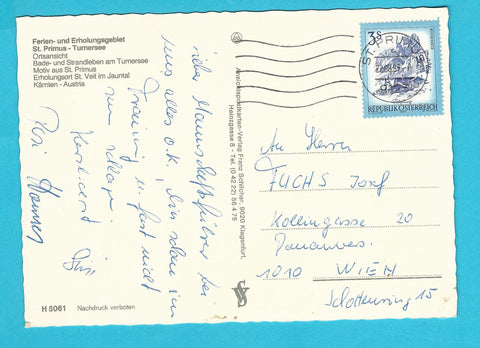 Ferien- und Erholungsgebiet
St. Primus - Turnersee
Ortsansicht
Bade- und Strandleben am Turnersee
Motiv aus St. Primus
Erholungsort St. Veit im Jauntal
Kärnten - Austria
H 5061 Nachdruck verboten
Ansichtspostkarten-Verlag Franz Schilcher, 9020 Klagenfurt,
Heinzgasse 8 - Tel. (0 42 22) 56 4 75
lieber Mannschaftsführer bei
uns alles o.k., bin schon im
Training u. fast nicht
zum schlagen
Herzlichst
3 S
REPUBLIK ÖSTERREICH
ST. PRIMUS
An Herrn
FUCHS Josef
Kollingasse 20
1010 WIEN
Schottenring 15